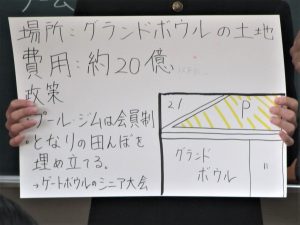 場所：グランドボウルの土地
費用：約20億
政策
・プール・ジムは会員制
・となりの田んぼを
埋め立てる。
→ゲートボウルのシニア大会
21
P
グランド
ボウル